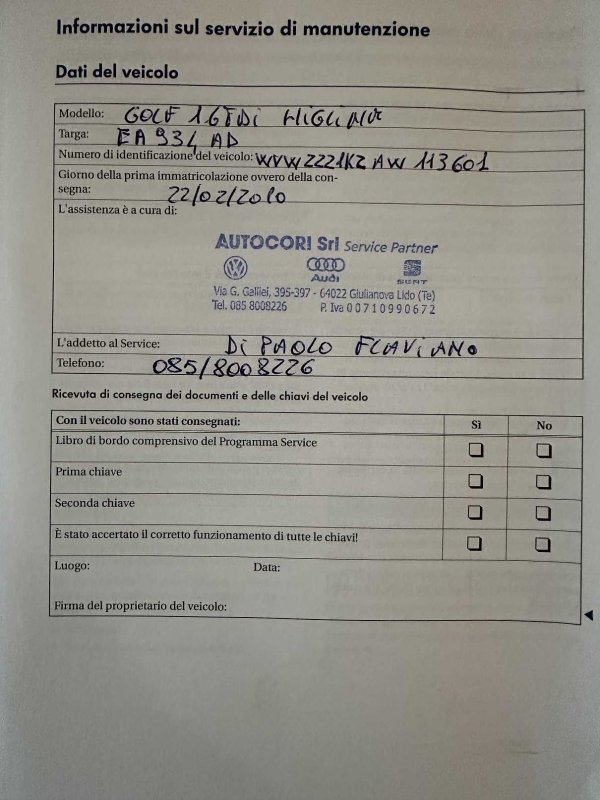 Informazioni sul servizio di manutenzione
Dati del veicolo
Modello: GOLF 1.6 TDi HIGLINE
Targa: EA 934 AD
Numero di identificazione del veicolo: WVWZZZ1KZAW113601
Giorno della prima immatricolazione ovvero della con-
segna: 22/02/2010
L'assistenza è a cura di:
AUTOCORI Srl Service Partner
Audi SEAT
Via G. Galilei, 395-397 - 64022 Giulianova Lido (Te)
Tel. 085 8008226 P. Iva 00710990672
L'addetto al Service: Di PAOLO FLAViANO
Telefono: 085/8008226
Ricevuta di consegna dei documenti e delle chiavi del veicolo
Con il veicolo sono stati consegnati: Sì No
Libro di bordo comprensivo del Programma Service
Prima chiave
Seconda chiave
È stato accertato il corretto funzionamento di tutte le chiavi!
Luogo: Data:
Firma del proprietario del veicolo: